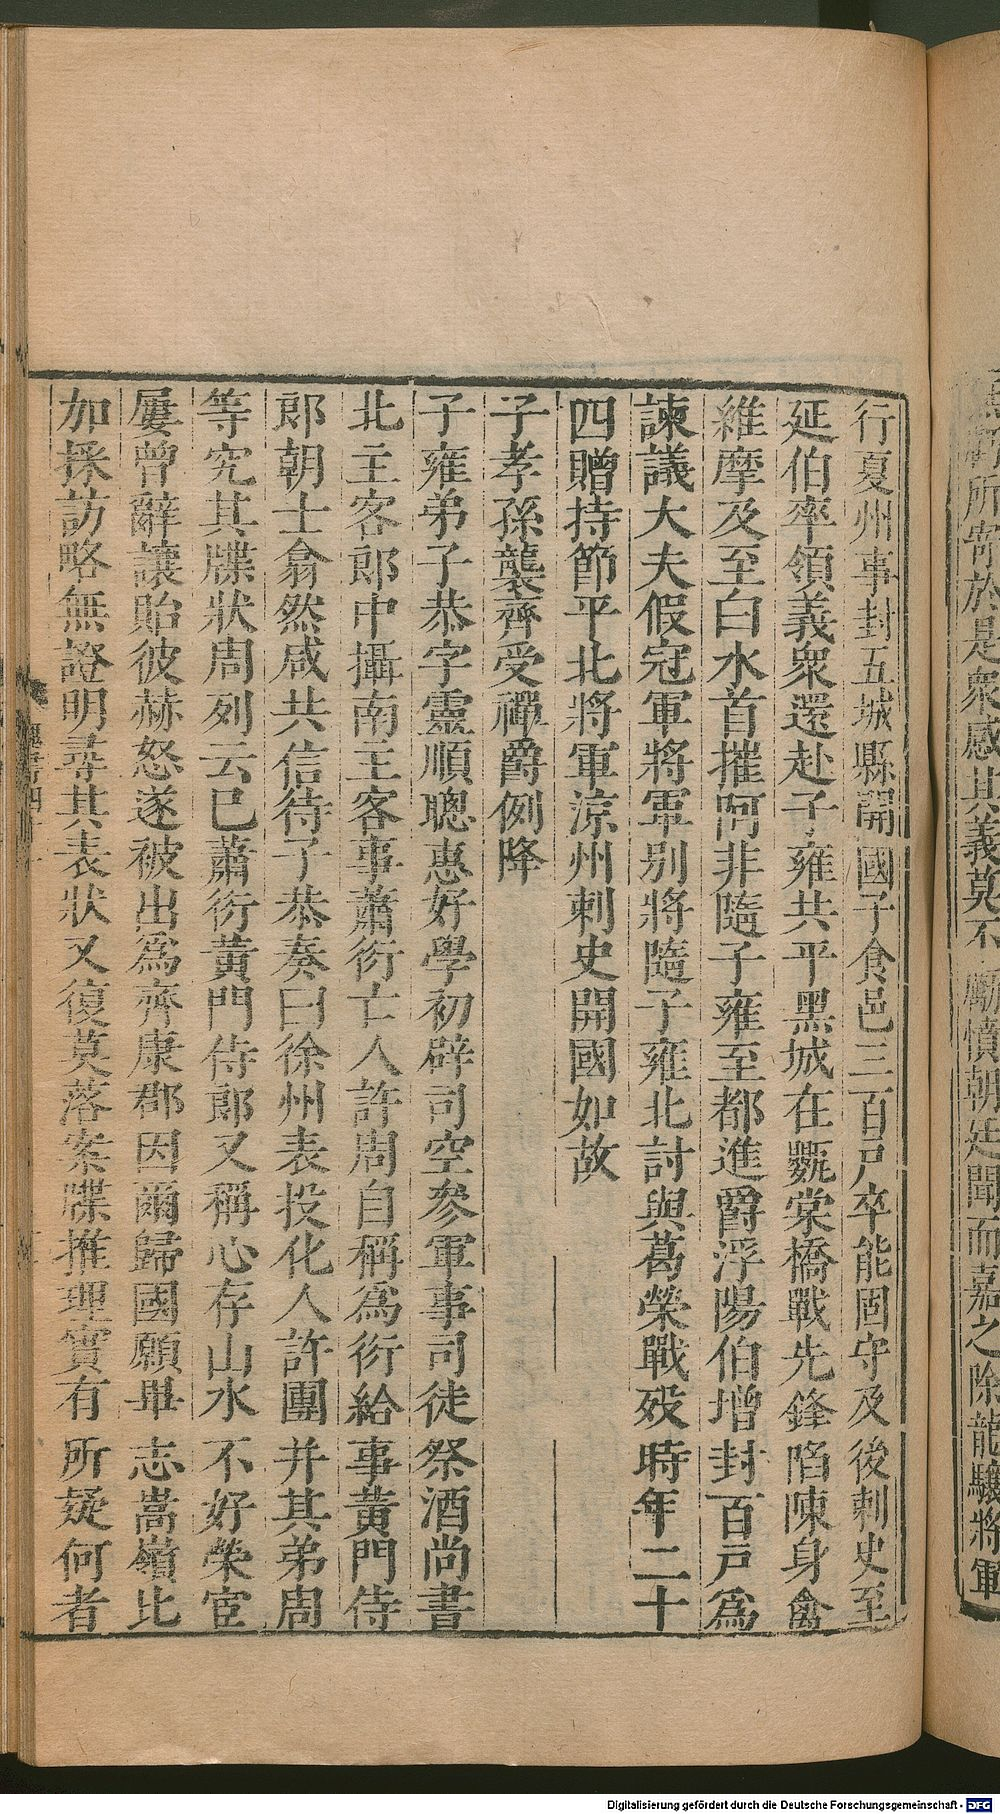 所寄於是衆感其義莫不勵憤朝廷聞而嘉之除龍驤將軍
行夏州事封五城縣開國子食邑三百戸卒能固守及後刺史至
延伯率領義衆還赴子雍共平黑城在甊棠橋戰先鋒陷陳身禽
維摩及至白水首摧阿非隨子雍至都進爵浮陽伯增封百戸爲
諫議大夫假冠軍將軍别將隨子雍北討與葛榮戰殁時年二十
四贈持節平北將軍涼州刺史開國如故
子孝孫襲齊受禪爵例降
子雍弟子恭字靈順聰惠好學初辟司空參軍事司徒祭酒尚書
北主客郎中攝南主客事蕭衍亡人許周自稱爲衍給事黄門侍
郎朝士翕然咸共信待子恭奏曰徐州表投化人許團并其弟周
等究其牒狀周列云已蕭衍黄門侍郎又稱心存山水不好榮宦
屢曾辭讓貽彼赫怒遂被出爲齊康郡因爾歸國願畢志嵩嶺比
加採訪略無證明尋其表狀又復莫落案牒推理實有所疑何者
魏書四十
Digitalisierung gefördert durch die Deutsche Forschungsgemeinschaft - DFG